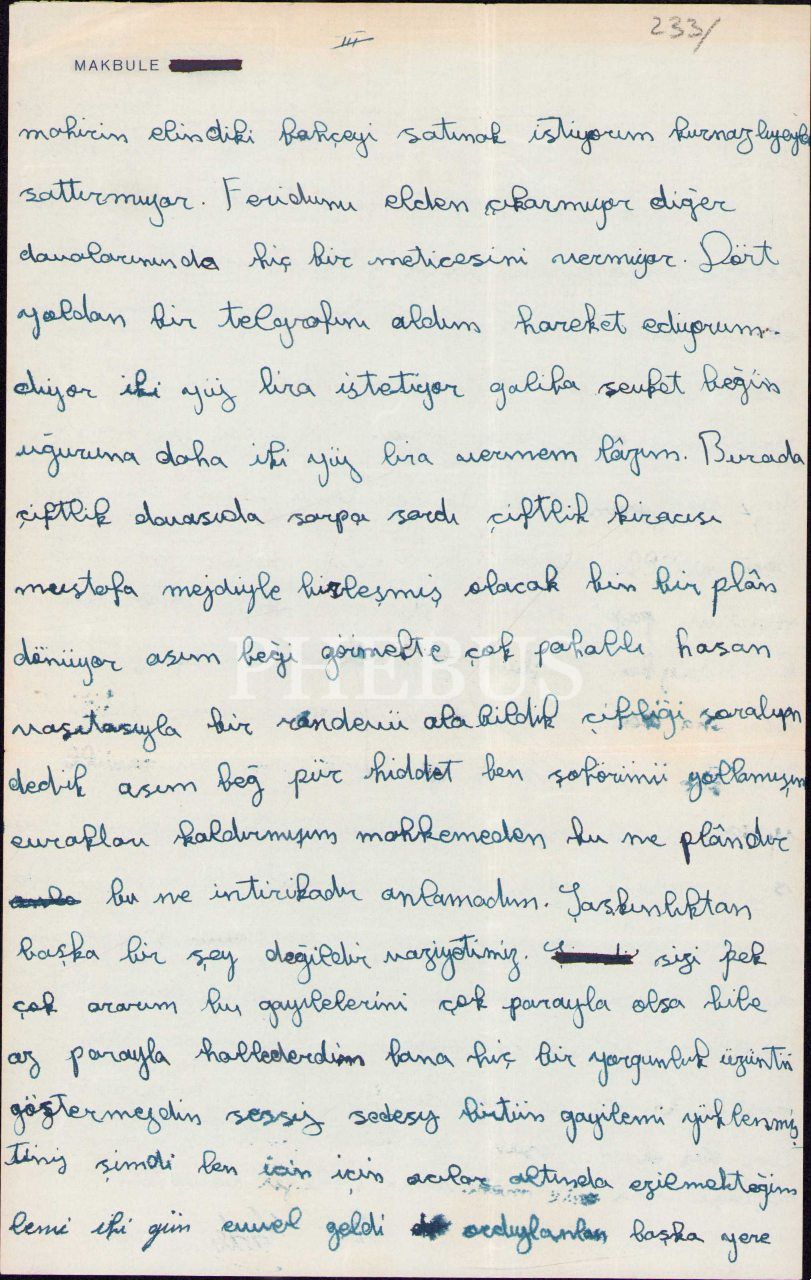 III
233/
MAKBULE
mahirin elindiki bahçeyi satmak istiyorum kurnazlıyeyle
sattırmıyor. Feridunu elden çıkarmıyor diğer
davalarınında hiç bir meticesini vermiyor. Dört
yoldan bir telgrafını aldım hareket ediyorum.
diyor iki yüz lira istetiyor galiba şevket beğin
uğuruna daha iki yüz lira vermem lâzım. Burada
çiftlik davasıda sarpa sardı çiftlik kiracısı
mustafa mejdiyle birleşmiş olacak bin bir plân
dönüyor asım beği görmekte çok pahallı hasan
vasıtasıyla bir randevü ala bildik çiftliği soralıym
dedik asım beğ pür hiddet ben şoförümü yollamışım
evrakları kaldırmışım mahkemeden bu ne plândır
bu ne intirikadır anlamadım. Şaşkınlıktan
başka bir şey değildir vaziyetimiz. sizi pek
çok ararım bu gayılelerini çok parayla olsa bile
az parayla hallederdin bana hiç bir yorgunluk üzüntü
göstermezdin sessiz sedesız bütün gayilemi yüklenmiş
tiniz şimdi ben için için acılar altında ezilmekteğim
lemi iki gün evvel geldi ordıylanlan başka yere
PHEBUS